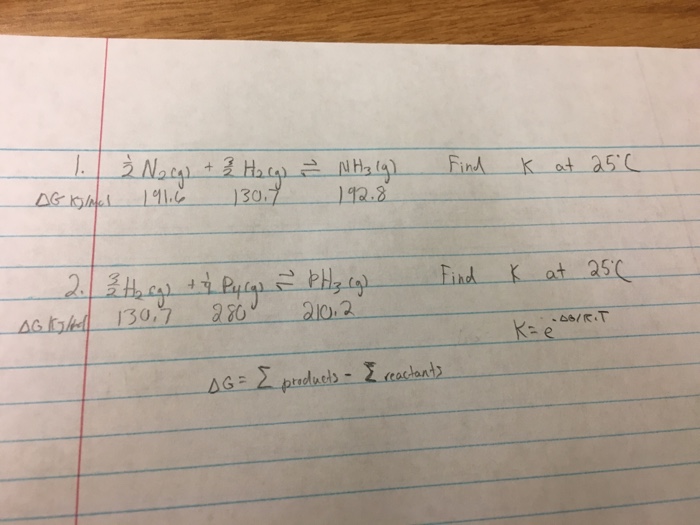 1. ½ N2(g) + 3/2 H2(g) ⇌ NH3(g) Find K at 25°C
ΔG KJ/mol 191.6 130.7 192.8
2. 3/2 H2(g) + ¼ P4(g) ⇌ PH3(g) Find K at 25°C
ΔG KJ/mol 130.7 280 210.2
K = e^-ΔG/R.T
ΔG = Σ products - Σ reactants